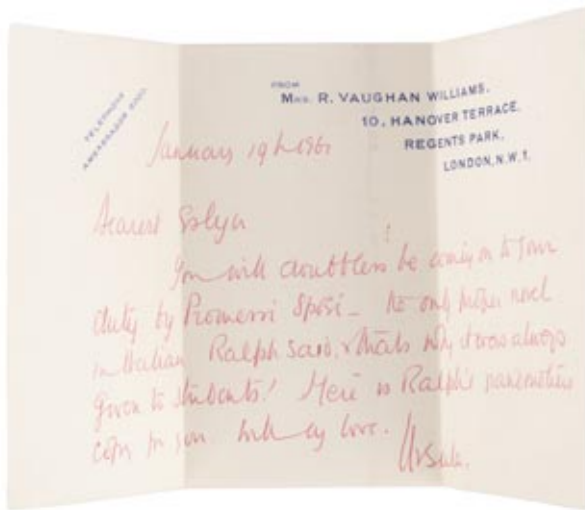 TELEPHONE
AMBASSADOR
FROM
MRS. R. VAUGHAN WILLIAMS.
10, HANOVER TERRACE.
REGENTS PARK.
LONDON, N.W.1.
January 19th 1961
Dearest Eslyn
You will doubtless be coming on to your
duty by Promessi Sposi - the only proper novel
in Italian Ralph said, & that's why it was always
given to students! Here is Ralph's
copy for you with my love.
Ursula.